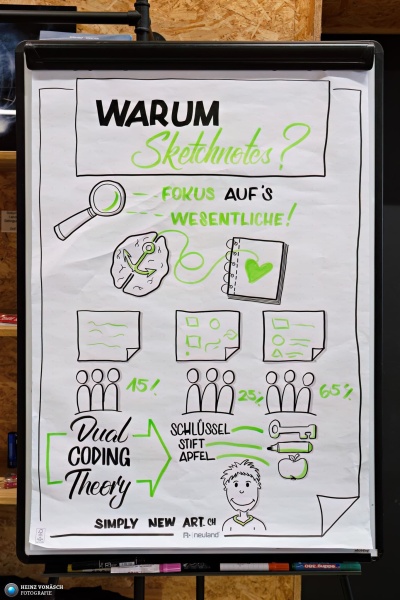 WARUM
Sketchnotes?
FOKUS AUF'S
WESENTLICHE!
15! 25% 65%
Dual
CODING
Theory
SCHLÜSSEL
STIFT
APFEL
SIMPLY NEW ART.CH
neuland
HEINZ VONÄSCH
FOTOGRAFIE